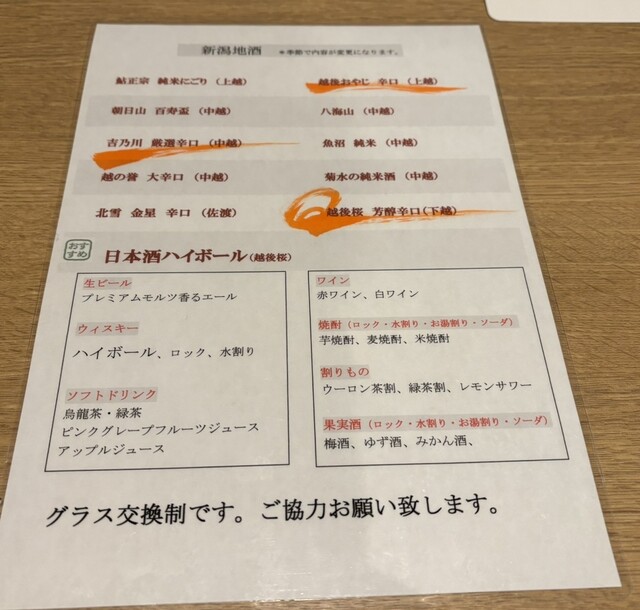 新潟地酒 ＊季節で内容が変更になります。
鮎正宗 純米にごり（上越） 越後おやじ 辛口（上越）
朝日山 百寿盃（中越） 八海山（中越）
吉乃川 厳選辛口（中越） 魚沼 純米（中越）
越の誉 大辛口（中越） 菊水の純米酒（中越）
北雪 金星 辛口（佐渡） 越後桜 芳醇辛口（下越）
おすすめ 日本酒ハイボール（越後桜）
生ビール
プレミアムモルツ香るエール
ウィスキー
ハイボール、ロック、水割り
ソフトドリンク
烏龍茶・緑茶
ピンクグレープフルーツジュース
アップルジュース
ワイン
赤ワイン、白ワイン
焼酎（ロック・水割り・お湯割り・ソーダ）
芋焼酎、麦焼酎、米焼酎
割りもの
ウーロン茶割、緑茶割、レモンサワー
果実酒（ロック・水割り・お湯割り・ソーダ）
梅酒、ゆず酒、みかん酒、
グラス交換制です。ご協力お願い致します。